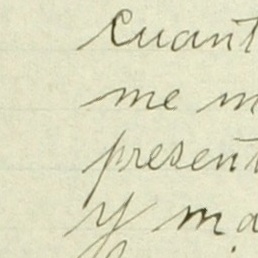 cuant
me m
present
y ma